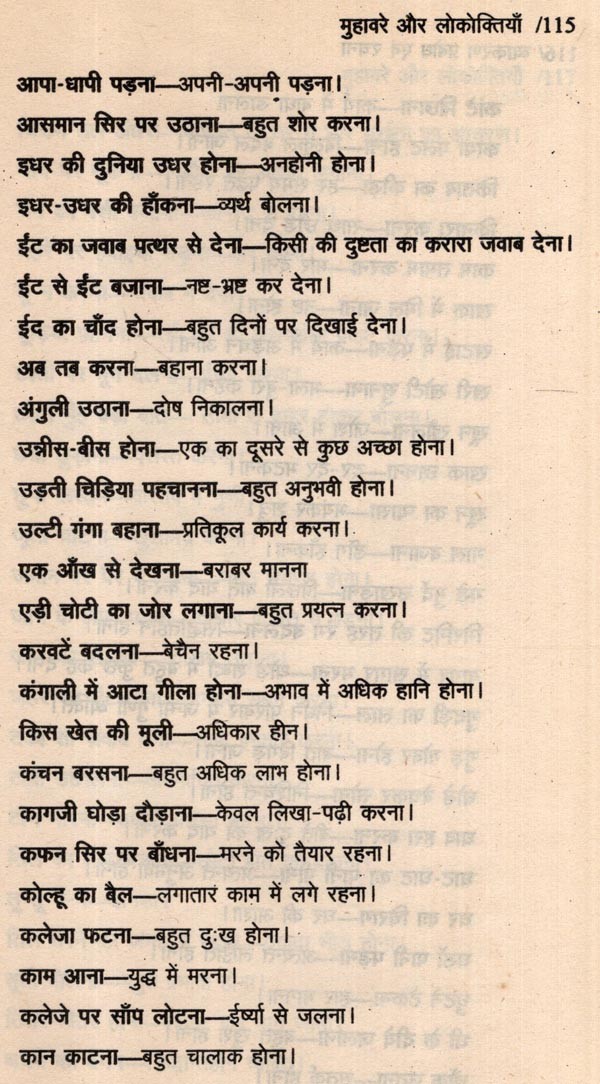 मुहावरे और लोकोक्तियाँ /115
आपा-धापी पड़ना—अपनी-अपनी पड़ना।
आसमान सिर पर उठाना—बहुत शोर करना।
इधर की दुनिया उधर होना—अनहोनी होना।
इधर-उधर की हाँकना—व्यर्थ बोलना।
ईंट का जवाब पत्थर से देना—किसी की दुष्टता का करारा जवाब देना।
ईंट से ईंट बजाना—नष्ट-भ्रष्ट कर देना।
ईद का चाँद होना—बहुत दिनों पर दिखाई देना।
अब तब करना—बहाना करना।
अंगुली उठाना—दोष निकालना।
उन्नीस-बीस होना—एक का दूसरे से कुछ अच्छा होना।
उड़ती चिड़िया पहचानना—बहुत अनुभवी होना।
उल्टी गंगा बहाना—प्रतिकूल कार्य करना।
एक आँख से देखना—बराबर मानना
एड़ी चोटी का जोर लगाना—बहुत प्रयत्न करना।
करवटें बदलना—बेचैन रहना।
कंगाली में आटा गीला होना—अभाव में अधिक हानि होना।
किस खेत की मूली—अधिकार हीन।
कंचन बरसना—बहुत अधिक लाभ होना।
कागजी घोड़ा दौड़ाना—केवल लिखा-पढ़ी करना।
कफन सिर पर बाँधना—मरने को तैयार रहना।
कोल्हू का बैल—लगातार काम में लगे रहना।
कलेजा फटना—बहुत दुःख होना।
काम आना—युद्ध में मरना।
कलेजे पर साँप लोटना—ईर्ष्या से जलना।
कान काटना—बहुत चालाक होना।